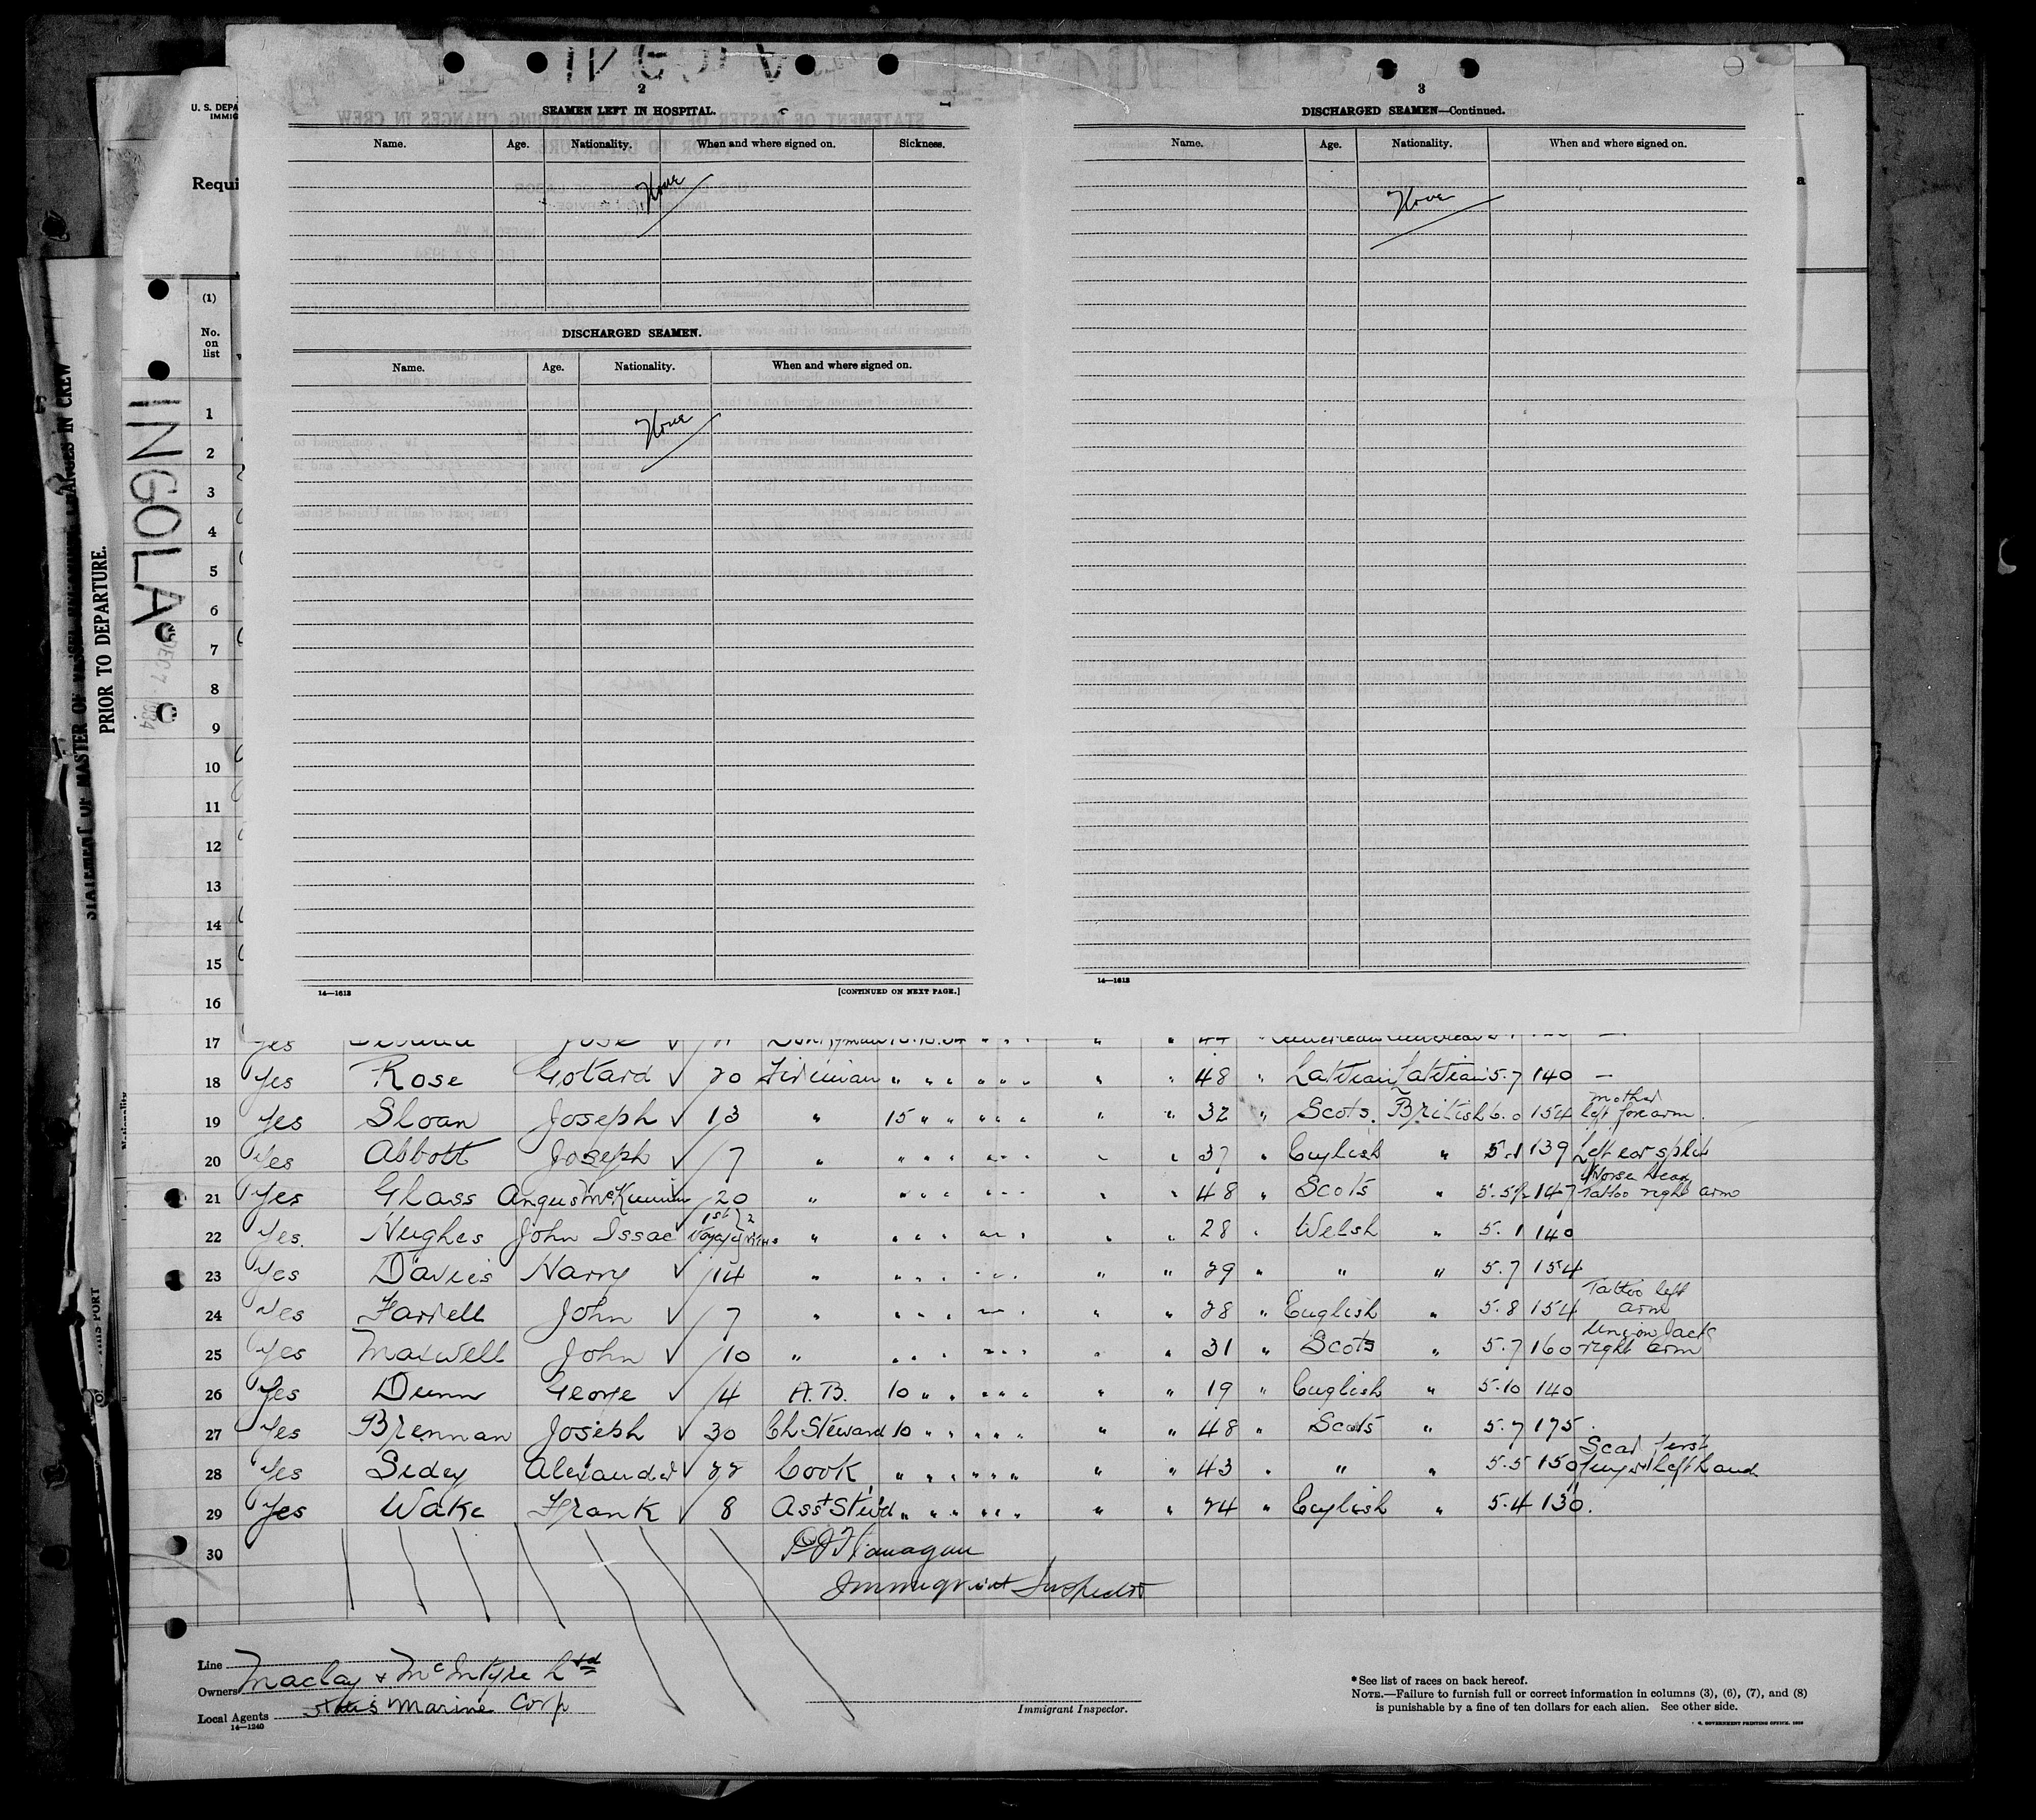 U. S. DEPA
IMMIG
Requi
(1)
No. on list
INGOLA
DEC 7 - 1934
STATEMENT OF MASTER OF VESSEL REGARDING CHANGES IN CREW
PRIOR TO DEPARTURE.
2
SEAMEN LEFT IN HOSPITAL.
Name. Age. Nationality. When and where signed on. Sickness.
None
DISCHARGED SEAMEN.
Name. Age. Nationality. When and where signed on.
None
14—1613 [CONTINUED ON NEXT PAGE.]
3
DISCHARGED SEAMEN—Continued.
Name. Age. Nationality. When and where signed on.
None
14—1613
1
2
3
4
5
6
7
8
9
10
11
12
13
14
15
16
17 Yes Jose
18 Yes Rose Gotard ✓ 20 Fireman " " " " " " " " 48 " Latvian Latvian 5.7 140 —
19 Yes Sloan Joseph ✓ 13 " 15 " " " " " " " 32 " Scots. British 6.0 154 mother left forearm.
20 Yes Abbott Joseph ✓ 7 " " " " " " " " " 37 " English " 5.1 139 Left ear split
21 Yes Glass Angus McKinnin 20 " " " " " " " " " 48 " Scots " 5.5½ 147 Horse head Tattoo right arm
22 Yes. Hughes John Issac 1st Voyage " " " " " " " " " 28 " Welsh " 5.1 140
23 Yes Davies Harry ✓ 14 " " " " " " " " " 29 " " " 5.7 154
24 Yes Farrell John ✓ 7 " " " " " " " " " 28 " English " 5.8 154 Tattoo left arm
25 Yes Maxwell John ✓ 10 " " " " " " " " " 31 " Scots " 5.7 160 Union Jack right arm
26 Yes Dunn George ✓ 4 A.B. 10 " " " " " " " 19 " English " 5.10 140
27 Yes Brennan Joseph ✓ 30 Ch Steward 10 " " " " " " " 48 " Scots " 5.7 175.
28 Yes Sidey Alexander ✓ 22 Cook " " " " " " " " 43 " " " 5.5 150 Scar first finger left hand
29 Yes Wake Frank ✓ 8 Asst Stew'd " " " " " " " " 24 " English " 5.4 130.
30
Flanagan
Immigrant Inspector
Line
Owners Maclay & McIntyre Ltd
Local Agents Marine Corp
14—1240
Immigrant Inspector.
*See list of races on back hereof.
NOTE.—Failure to furnish full or correct information in columns (3), (6), (7), and (8)
is punishable by a fine of ten dollars for each alien. See other side.
GOVERNMENT PRINTING OFFICE.